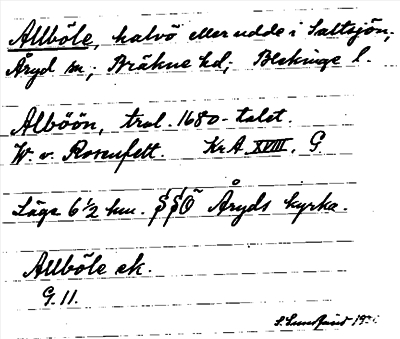 Allböle, halvö eller udde i Saltsjön;
Åryd sn; Bräkne hd; Blekinge l.
Alböön, trol. 1680-talet.
W. v. Rosenfelt. KrA XVIII. G
Läge 6 1/2 km. SSÖ Åryds kyrka.
Allböle ek.
G. 11.